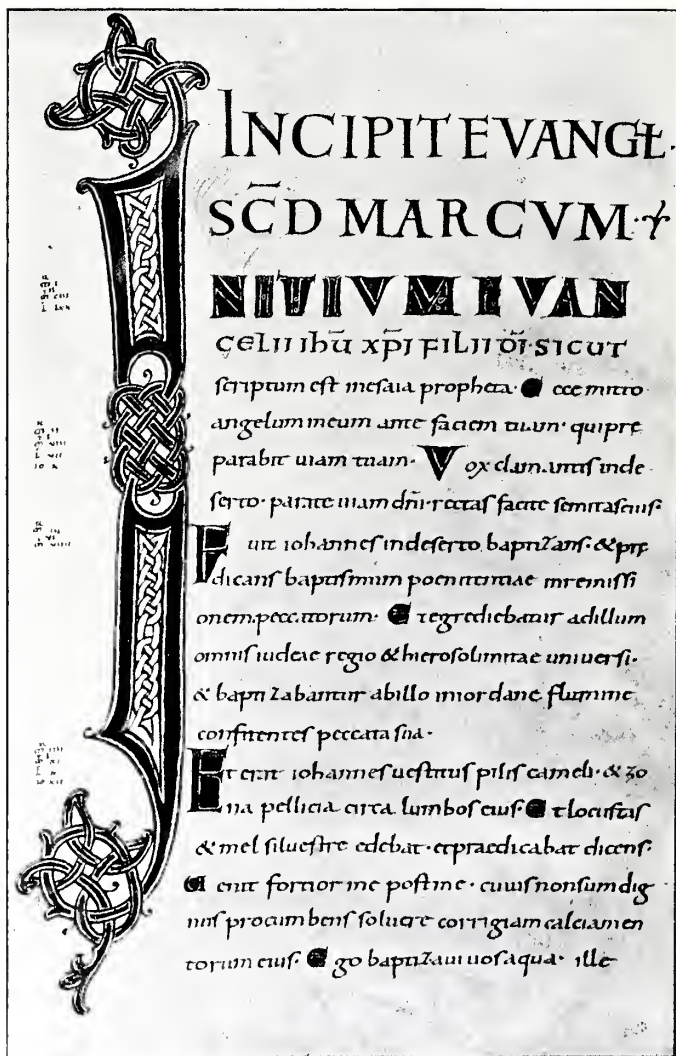 INCIPIT EVANGƚ·
SC̄D MARCVM·
NITIVM EVAN
GELII ihū xp̄i FILII d̄i· SICUT
scriptum est inesaia propheta· Ecce mitto
angelum meum ante faciem tuam· quipre
parabit uiam tuam· Vox clamantis inde
serto· parate uiam dn̄i· rectas facite semitaseius·
Fuit iohannes indeserto baptizans· & prę
dicans baptismum poenitentiae inremissi
onem peccatorum· Et egrediebatur adillum
omnis iudeae regio & hierosolimitae uniuersi·
& baptizabantur abillo iniordane flumine
confitentes peccata sua·
Et erat iohannes uestitus pilis cameli· & zo
na pellicia circa lumbos eius· Et locustas
& mel siluestre edebat· etpraedicabat dicens·
Uenit fortior me postme· cuius nonsum dig
nus procumbens soluere corrigiam calciamen
torum eius· Ego baptizaui uos aqua· ille